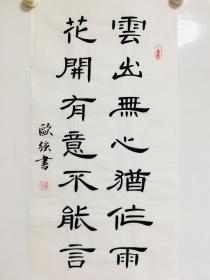 雲出無心猶作雨
花開有意不能言
歐強書